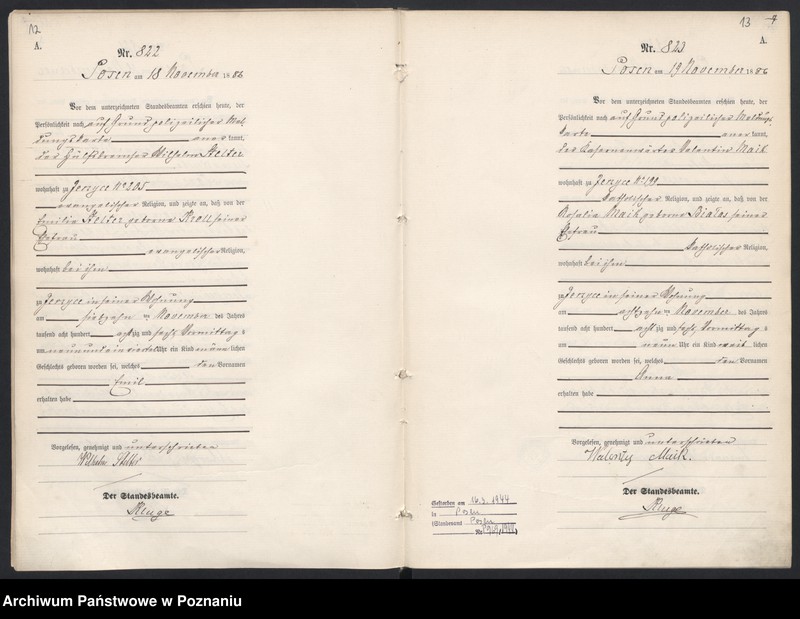 12
A.
Nr. 822
Posen am 18 November 1886
Vor dem unterzeichneten Standesbeamten erschien heute, der
Persönlichkeit nach auf Grund polizeilicher Mel-
dungskarte anerkannt,
der Hülfsbremser Wilhelm
wohnhaft zu Jerzyce No 205
evangelischer Religion, und zeigte an, daß von der
Emilie geborene Kroll seiner
Ehefrau
evangelischer Religion,
wohnhaft bei ihm
zu Jerzyce in seiner Wohnung
am siebzehn ten November des Jahres
tausend acht hundert achtzig und sechs Vormittag s
um neun und ein viertel Uhr ein Kind männ lichen
Geschlechts geboren worden sei, welches den Vornamen
Emil
erhalten habe
Vorgelesen, genehmigt und unterschrieben
Wilhelm
Der Standesbeamte.
Kluge
13
A.
Nr. 823
Posen am 19 November 1886
Vor dem unterzeichneten Standesbeamten erschien heute, der
Persönlichkeit nach auf Grund polizeilicher Meldungs-
karte anerkannt,
der Kasernenwärter Valentin Maik
wohnhaft zu Jerzyce No 191
katholischer Religion, und zeigte an, daß von der
Rosalia Maik geborene Białas seiner
Ehefrau
katholischer Religion,
wohnhaft bei ihm
zu Jerzyce in seiner Wohnung
am achtzehn ten November des Jahres
tausend acht hundert achtzig und sechs Vormittag s
um neun Uhr ein Kind weib lichen
Geschlechts geboren worden sei, welches den Vornamen
Anna
erhalten habe
Vorgelesen, genehmigt und unterschrieben
Walenty Maik.
Der Standesbeamte.
Kluge
Gestorben am 16.3.1944
in Posen
(Standesamt Posen
Nr.
Archiwum Państwowe w Poznaniu